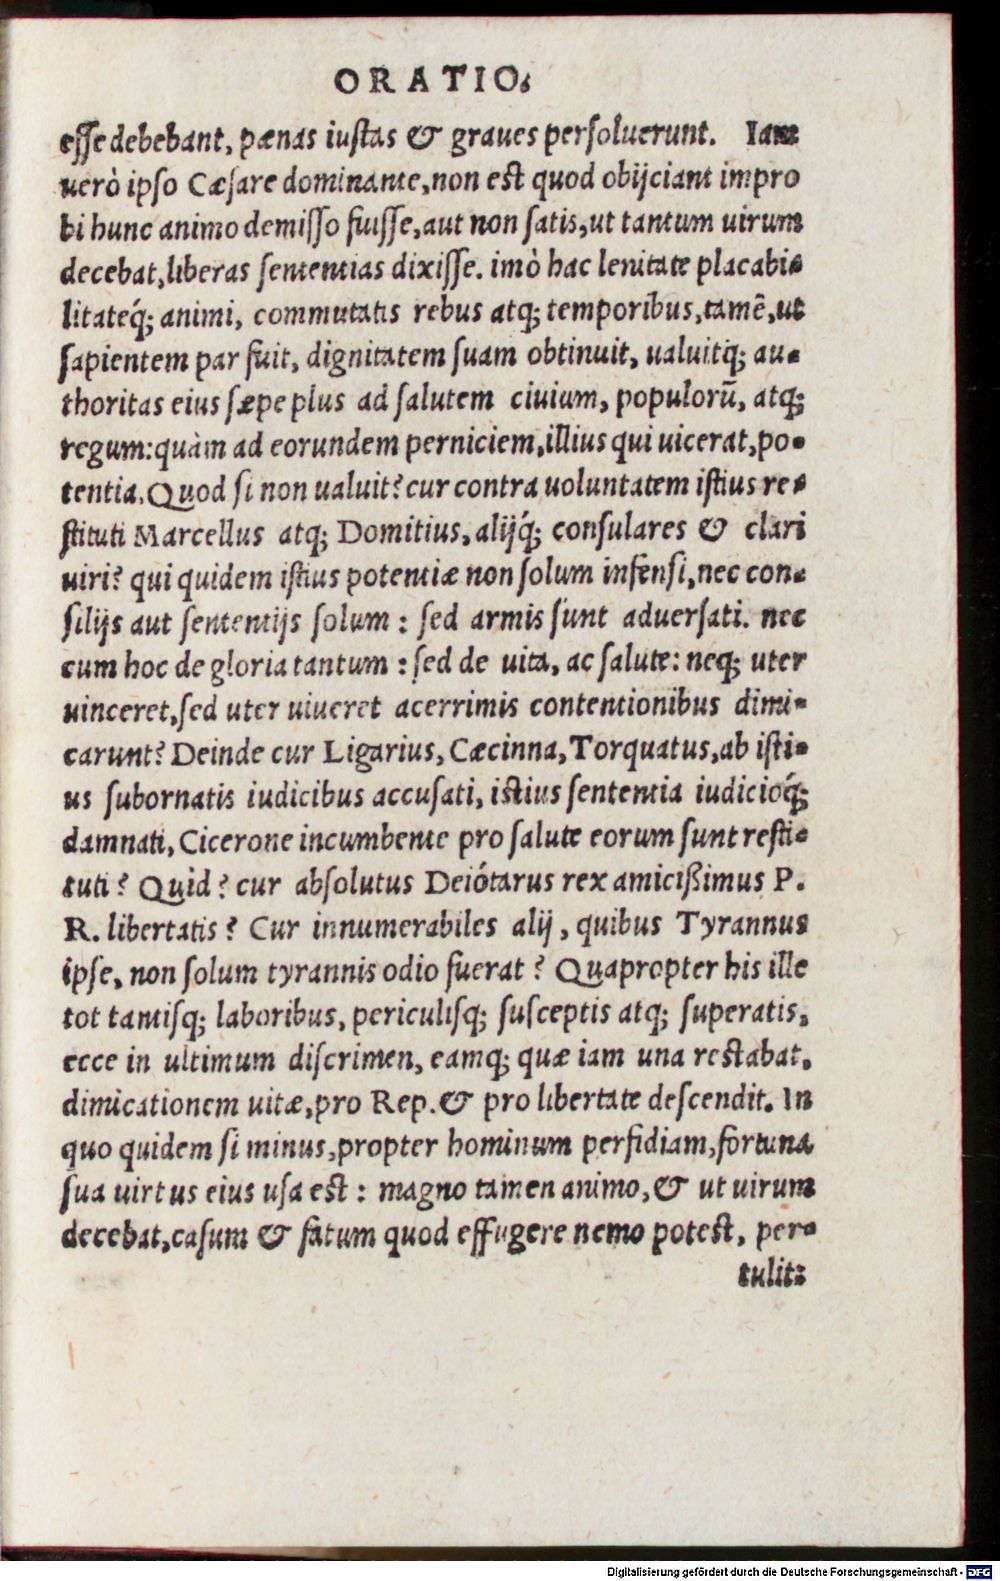 ORATIO.
esse debebant, pœnas iustas & graues persoluerunt. Iam
uerò ipso Cæsare dominante, non est quod obijciant impro
bi hunc animo demisso fuisse, aut non satis, ut tantum uirum
decebat, liberas sententias dixisse. imò hac lenitate placabi-
litateq́; animi, commutatis rebus atq; temporibus, tamē, ut
sapientem par fuit, dignitatem suam obtinuit, ualuitq́; au-
thoritas eius sæpe plus ad salutem ciuium, populorū, atq;
regum: quàm ad eorundem perniciem, illius qui uicerat, po-
tentia. Quod si non ualuit? cur contra uoluntatem istius re-
stituti Marcellus atq; Domitius, alijq́; consulares & clari
uiri? qui quidem istius potentiæ non solum infensi, nec con-
silijs aut sententijs solum : sed armis sunt aduersati. nec
cum hoc de gloria tantum : sed de uita, ac salute: neq; uter
uinceret, sed uter uiueret acerrimis contentionibus dimi-
carunt? Deinde cur Ligarius, Cæcinna, Torquatus, ab isti-
us subornatis iudicibus accusati, istius sententia iudicioq́;
damnati, Cicerone incumbente pro salute eorum sunt resti-
tuti? Quid? cur absolutus Deiótarus rex amicißimus P.
R. libertatis? Cur innumerabiles alij, quibus Tyrannus
ipse, non solum tyrannis odio fuerat? Quapropter his ille
tot tantisq; laboribus, periculisq; susceptis atq; superatis,
ecce in ultimum discrimen, eamq; quæ iam una restabat,
dimicationem uitæ, pro Rep. & pro libertate descendit. In
quo quidem si minus, propter hominum perfidiam, fortuna
sua uirtus eius usa est : magno tamen animo, & ut uirum
decebat, casum & fatum quod effugere nemo potest, per-
tulit:
Digitalisierung gefördert durch die Deutsche Forschungsgemeinschaft - DFG